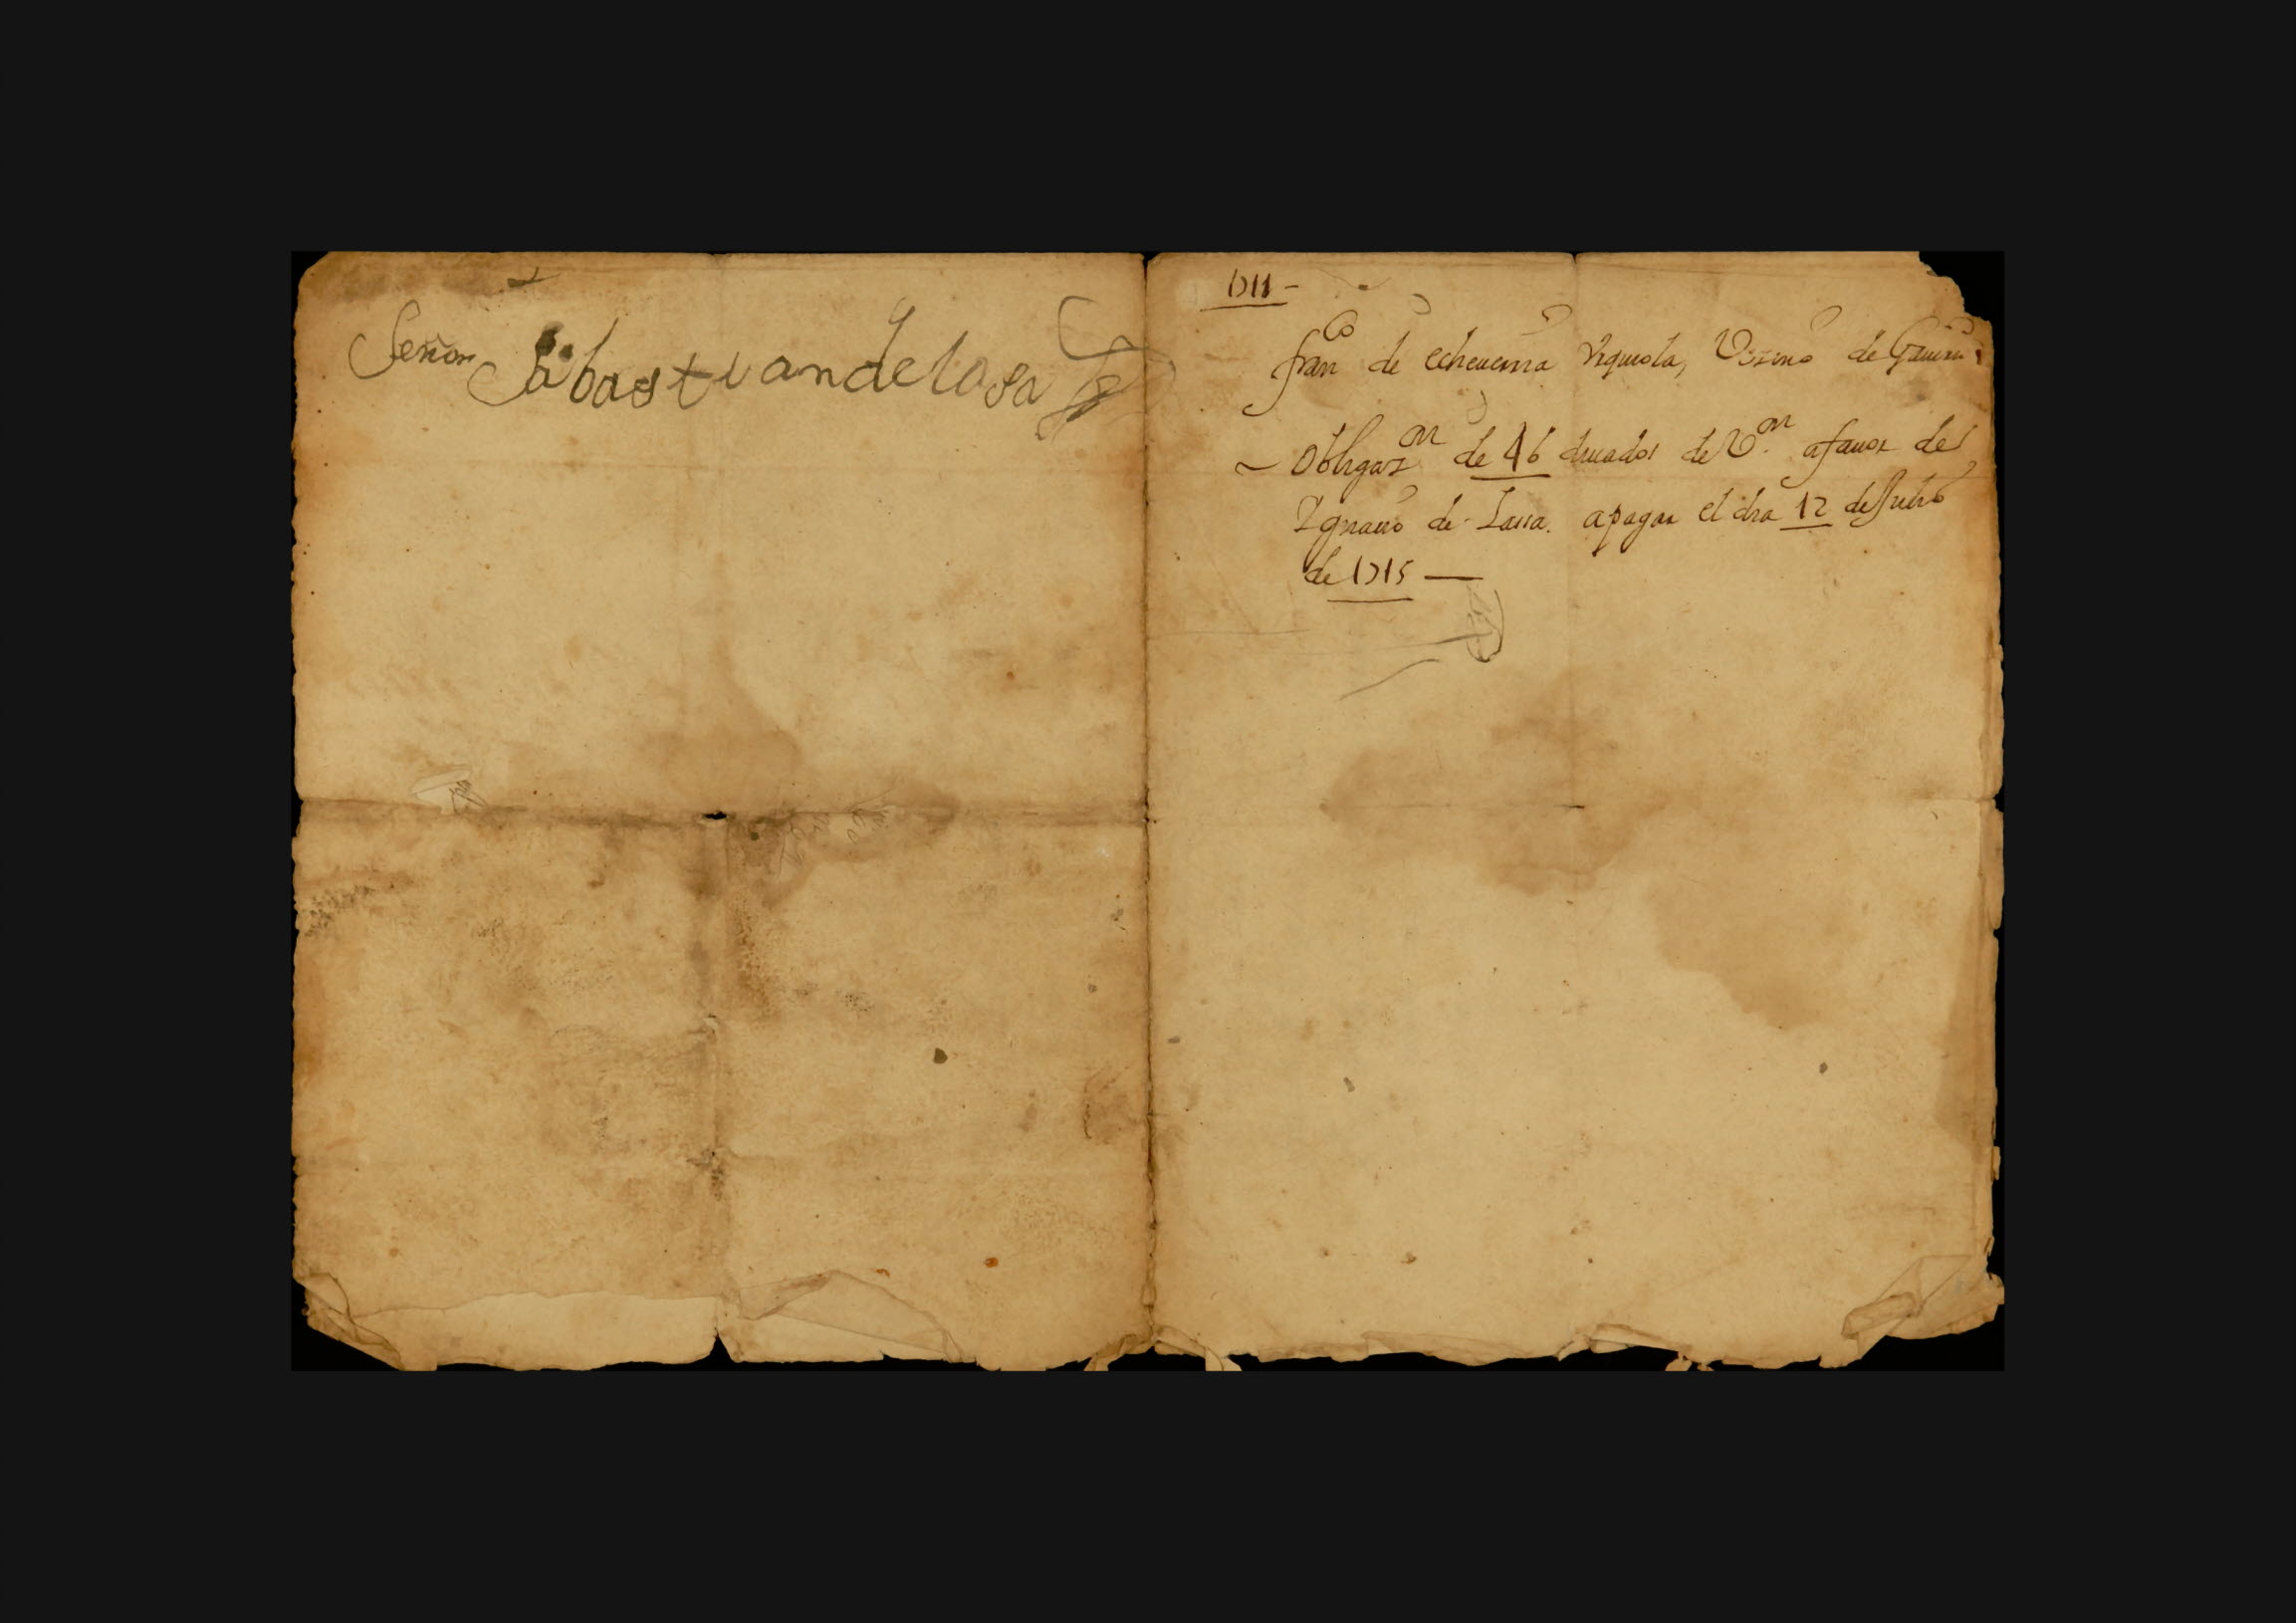 Señor Sabastiandelasa
1711 -
fran^co de echeuerria Vrquiola, Vezino de Gauiria
- Obligaz^on de 46 ducados de V^on. afauor de
Ygnacio de Lassa. apagar el dia 12 de Julio
de 1715 —